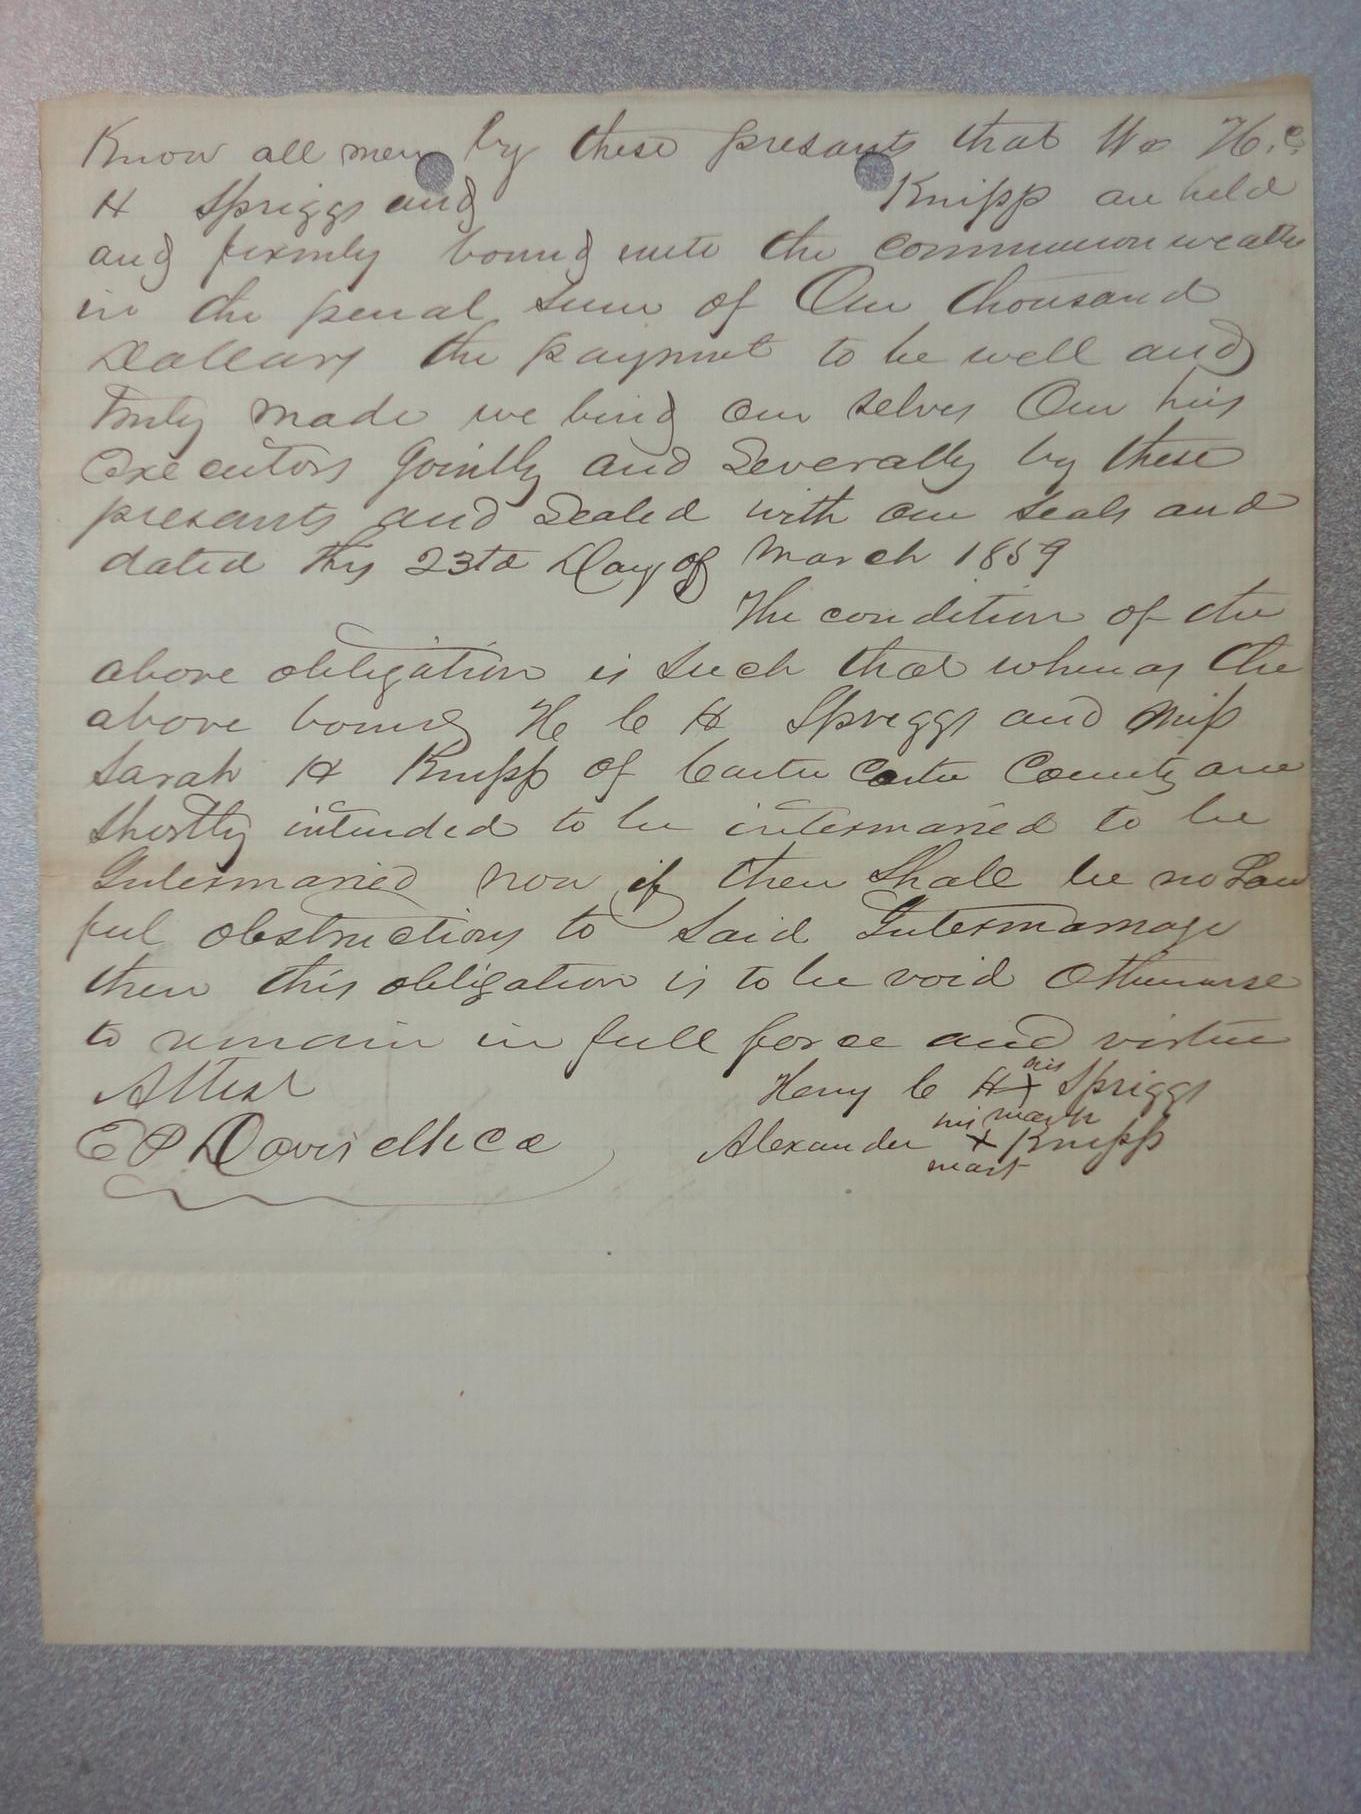 Know all men by these presants that We H. C.
H Spriggs and Knipp are held
and firmly bound unto the commonwealth
in the penal sum of One thousand
Dollars the payment to be well and
Truly made we bind our selves Our heirs
Executors Jointly and Severally by these
presants and Sealed with our seals and
dated this 23td Day of March 1859
The condition of the
above obligation is such that whereas the
above bound H C H Spriggs and Miss
Sarah H Knipp of Carter Carter County are
Shortly intended to be intermaried to be
Intermaried now if there Shall be no Law
ful obstructions to Said Intermarriage
then this obligation is to be void Otherwise
to remain in full force and virtue
Attest Henry C H his X Spriggs
mark
E P Davis Alexander his X Knipp
mark